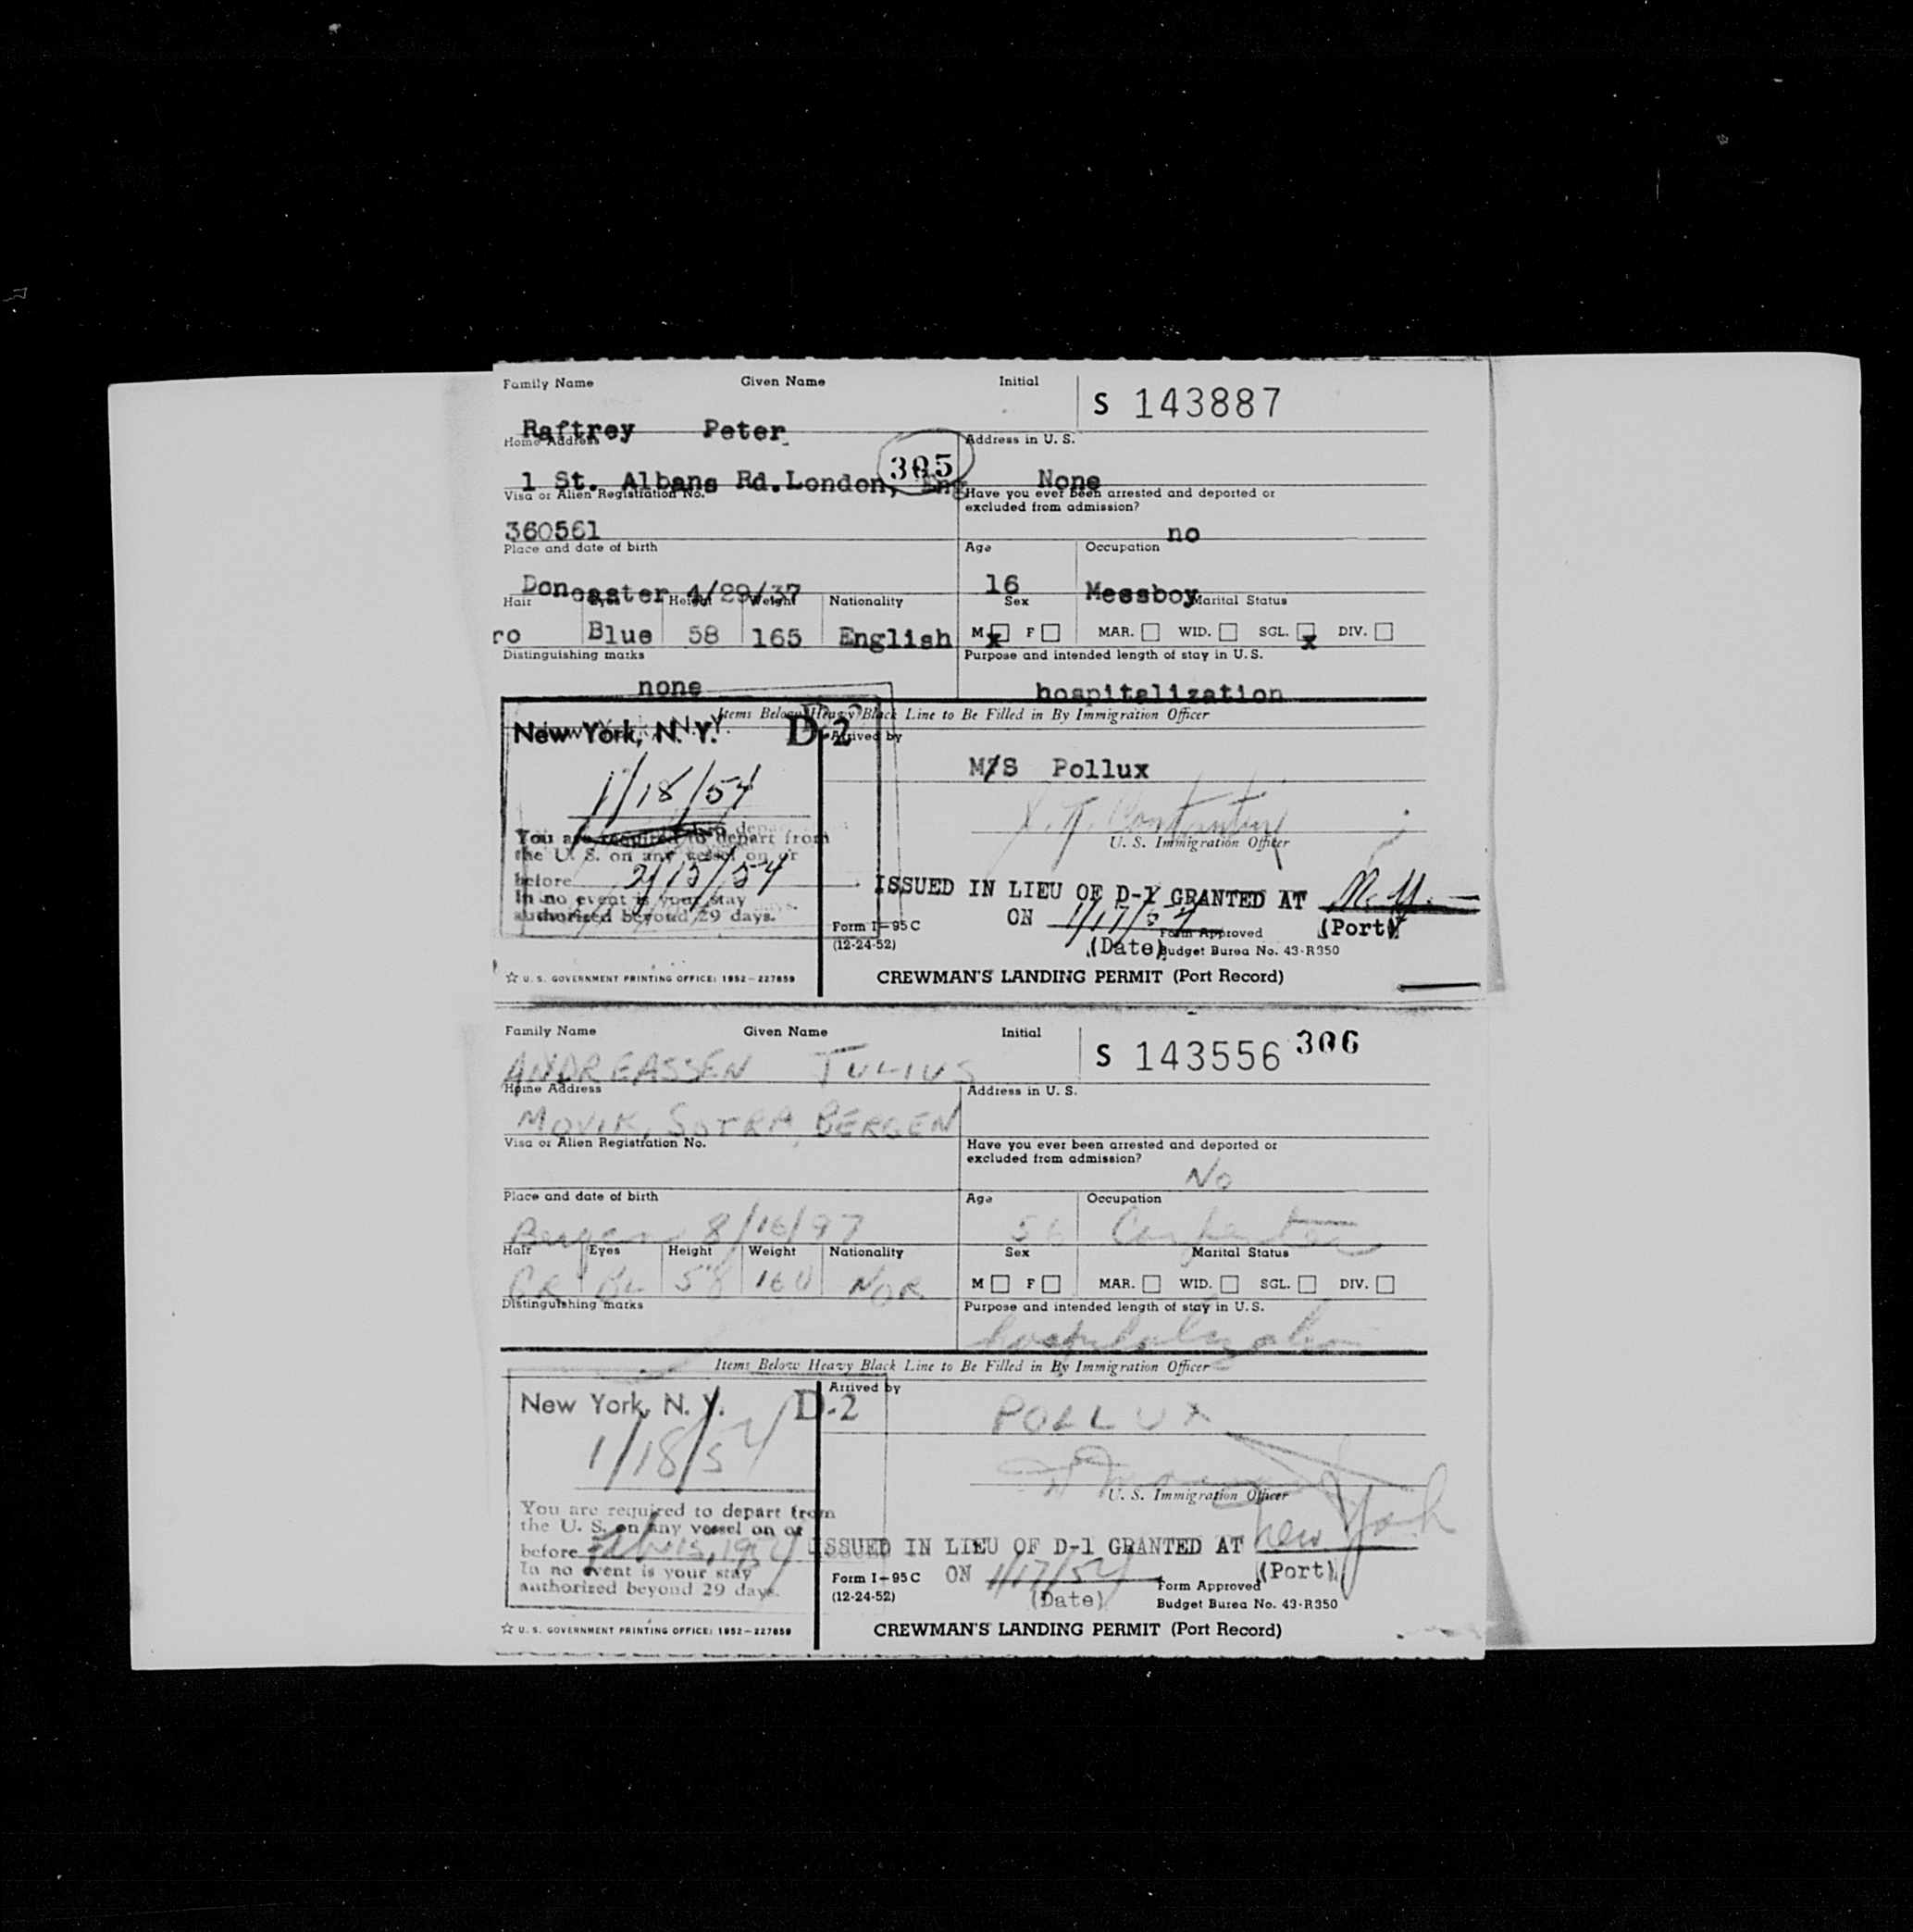 Family Name Given Name Initial S 143887
Raftrey Peter
Home Address Address in U. S.
305
1 St. Albans Rd.London, Eng None
Visa or Alien Registration No. Have you ever been arrested and deported or
excluded from admission?
360561 no
Place and date of birth Age Occupation
Doncaster 4/29/37 16 Messboy
Hair Eyes Height Weight Nationality Sex Marital Status
ro Blue 58 165 English M x F MAR. WID. SGL. x DIV.
Distinguishing marks Purpose and intended length of stay in U. S.
none hospitalization
Items Below Heavy Black Line to Be Filled in By Immigration Officer
New York, N. Y. D-2 Arrived by
M/S Pollux
1/18/54
U. S. Immigration Officer
You are required to depart from
the U. S. on any vessel on or
before 2/15/54
In no event is your stay
authorized beyond 29 days.
ISSUED IN LIEU OF D-1 GRANTED AT
ON 1/17/54 (Port)
(Date)
Form I-95C Form Approved
(12-24-52) Budget Burea No. 43-R350
☆ U. S. GOVERNMENT PRINTING OFFICE: 1952-227859 CREWMAN'S LANDING PERMIT (Port Record)
Family Name Given Name Initial S 143556 306
ANDREASSEN JULIUS
Home Address Address in U. S.
MOVIK, SOTRA, BERGEN
Visa or Alien Registration No. Have you ever been arrested and deported or
excluded from admission?
No
Place and date of birth Age Occupation
Bergen 8/16/97 56 Carpenter
Hair Eyes Height Weight Nationality Sex Marital Status
GR BL 58 160 NOR. M F MAR. WID. SGL. DIV.
Distinguishing marks Purpose and intended length of stay in U. S.
hospitalization
Items Below Heavy Black Line to Be Filled in By Immigration Officer
New York, N. Y. D-2 Arrived by
POLLUX
1/18/54
U. S. Immigration Officer
You are required to depart from
the U. S. on any vessel on or
before Feb 15, 1954
In no event is your stay
authorized beyond 29 days.
ISSUED IN LIEU OF D-1 GRANTED AT New York
ON 1/17/54 (Port)
(Date)
Form I-95C Form Approved
(12-24-52) Budget Burea No. 43-R350
☆ U. S. GOVERNMENT PRINTING OFFICE: 1952-227859 CREWMAN'S LANDING PERMIT (Port Record)